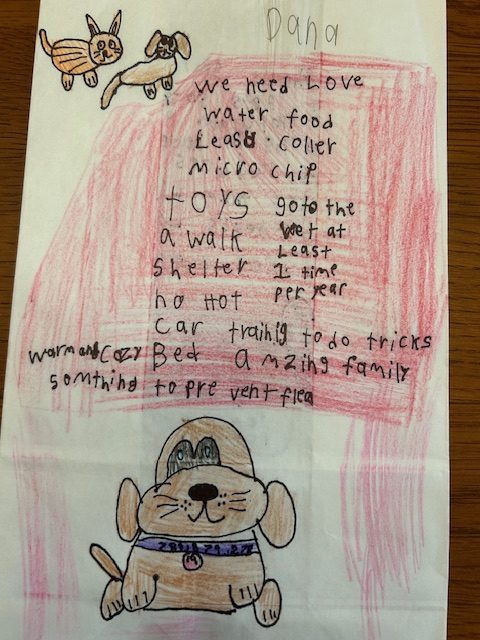 Dana
we need Love
water food
Leash coller
micro chip
toys
a walk
shelter
no hot
car
Bed
go to the
vet at
Least
1 time
per year
trainig to do tricks
a mzing family
warm and cozy
somthing to pre vent flea